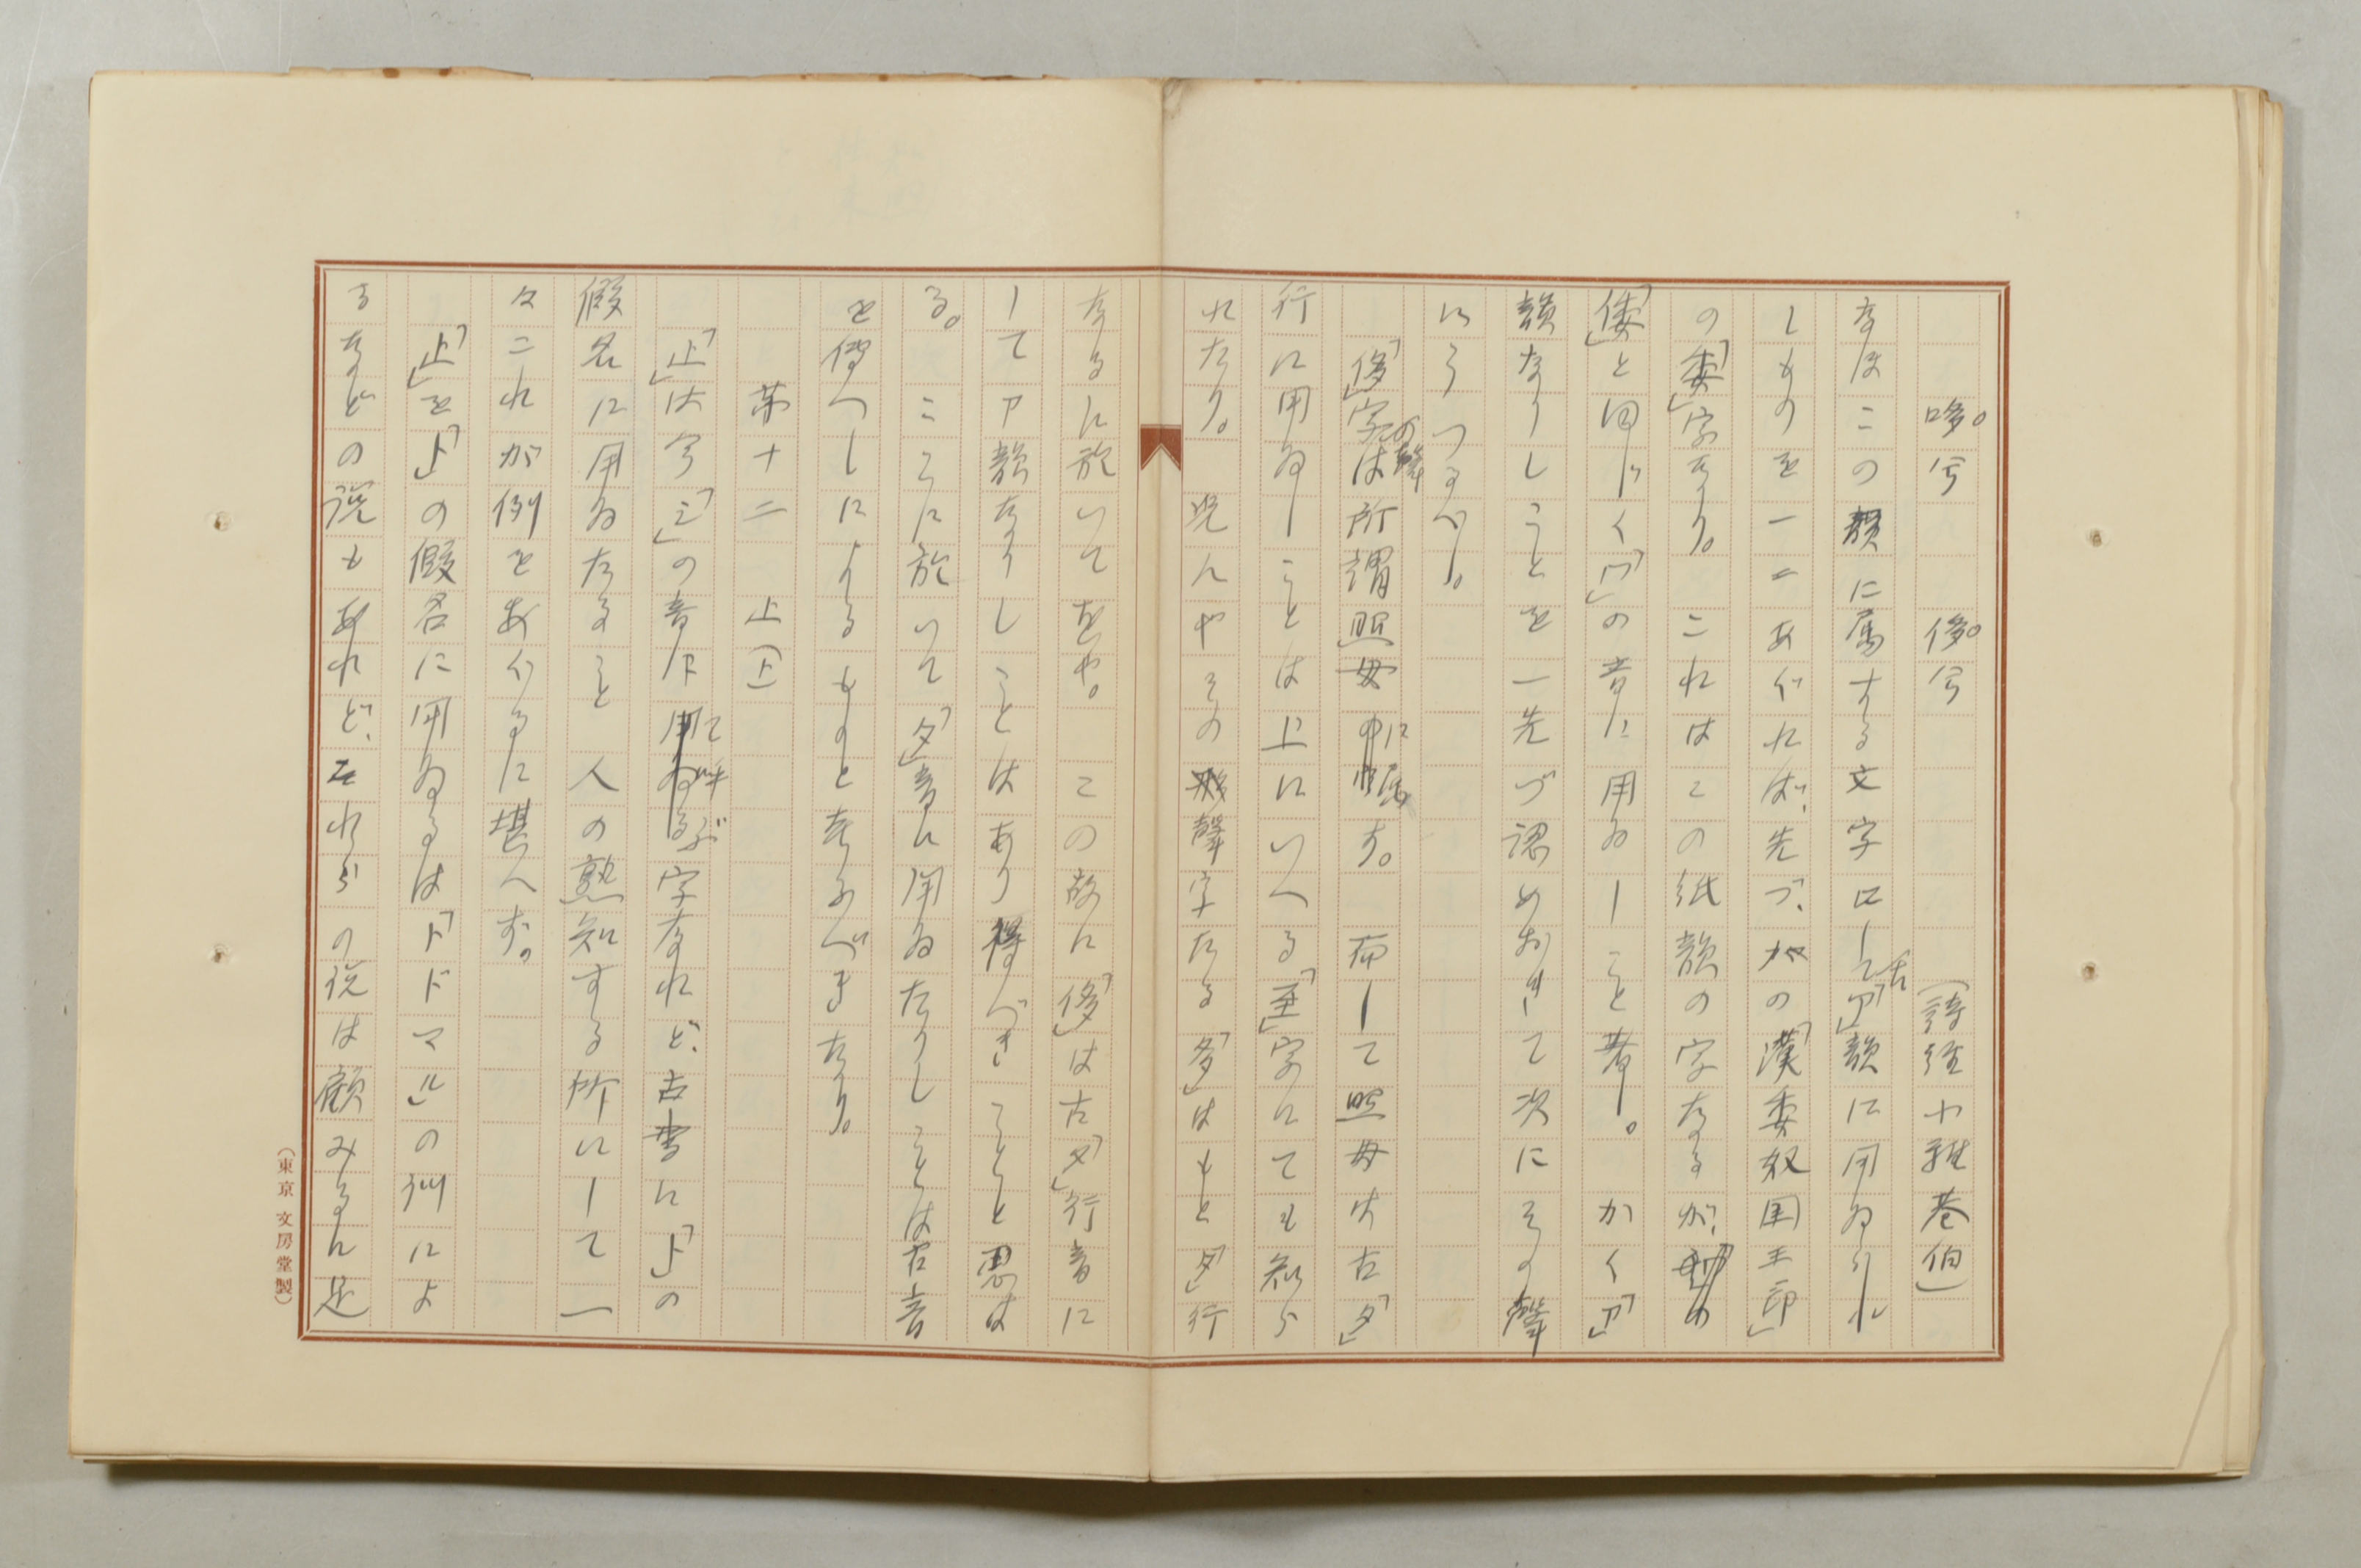 哆。兮　侈。兮　（詩経小雅巷伯）
なほこの韻に属する文字にして古「ア」韻に用ゐられ
しものを一二あぐれば、先づ、かの「漢委奴国王印」
の「委」字なり。これはこの紙韻の字なるが、
「倭」と同じく「ワ」の音に用ゐしこと著し。かく「ア」
韻なりしことを一先づ認めおきて次にその聲
にうつるべし。
「侈」字の聲は所謂照母に属す。而して照母は古「タ」
行に用ゐしことは上にいへる「至」字にても知ら
れたり。況んやその聲字たる「多」はもと「タ」行
なるに於いてをや。この故に「侈」は古「タ」行音に
してア韻なりしことはあり得べきことと思は
る。ここに於いて「タ」音に用ゐたりしことは古音
を傳へしによるものと考ふべきなり。
第十二　止（上）
「止」は今「シ」の音にて呼ぶ字なれど、古書に「ト」の
假名に用ゐたること人の熟知する所にして一
々これが例をあぐるに堪へず。
「止」を「ト」の假名に用ゐるは「トドマル」の訓によ
るなどの説もあれど、それらの説は顧みるに足
（東京 文房堂製）